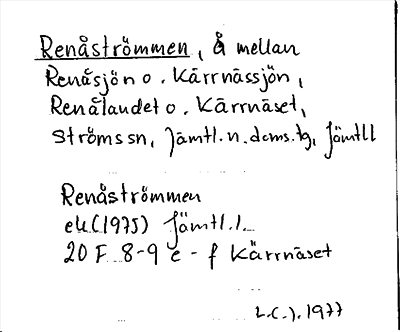 Renåströmmen, å mellan
Renåsjön o. Kärrnässjön,
Renålandet o. Kärrnäset,
Ströms sn, Jämtl. n. doms. tg, Jämtl l
Renåströmmen
ek (1975) Jämtl. l.
20 F 8-9 e-f Kärrnäset
1977